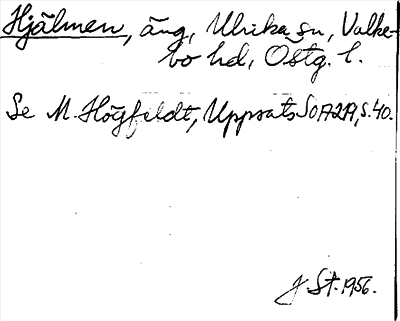 Hjälmen, äng, Ulrika sn, Valke-
bo hd, Östg. l.
Se M. Högfeldt, Uppsats SOA2A, s. 40.
J. St. 1956.